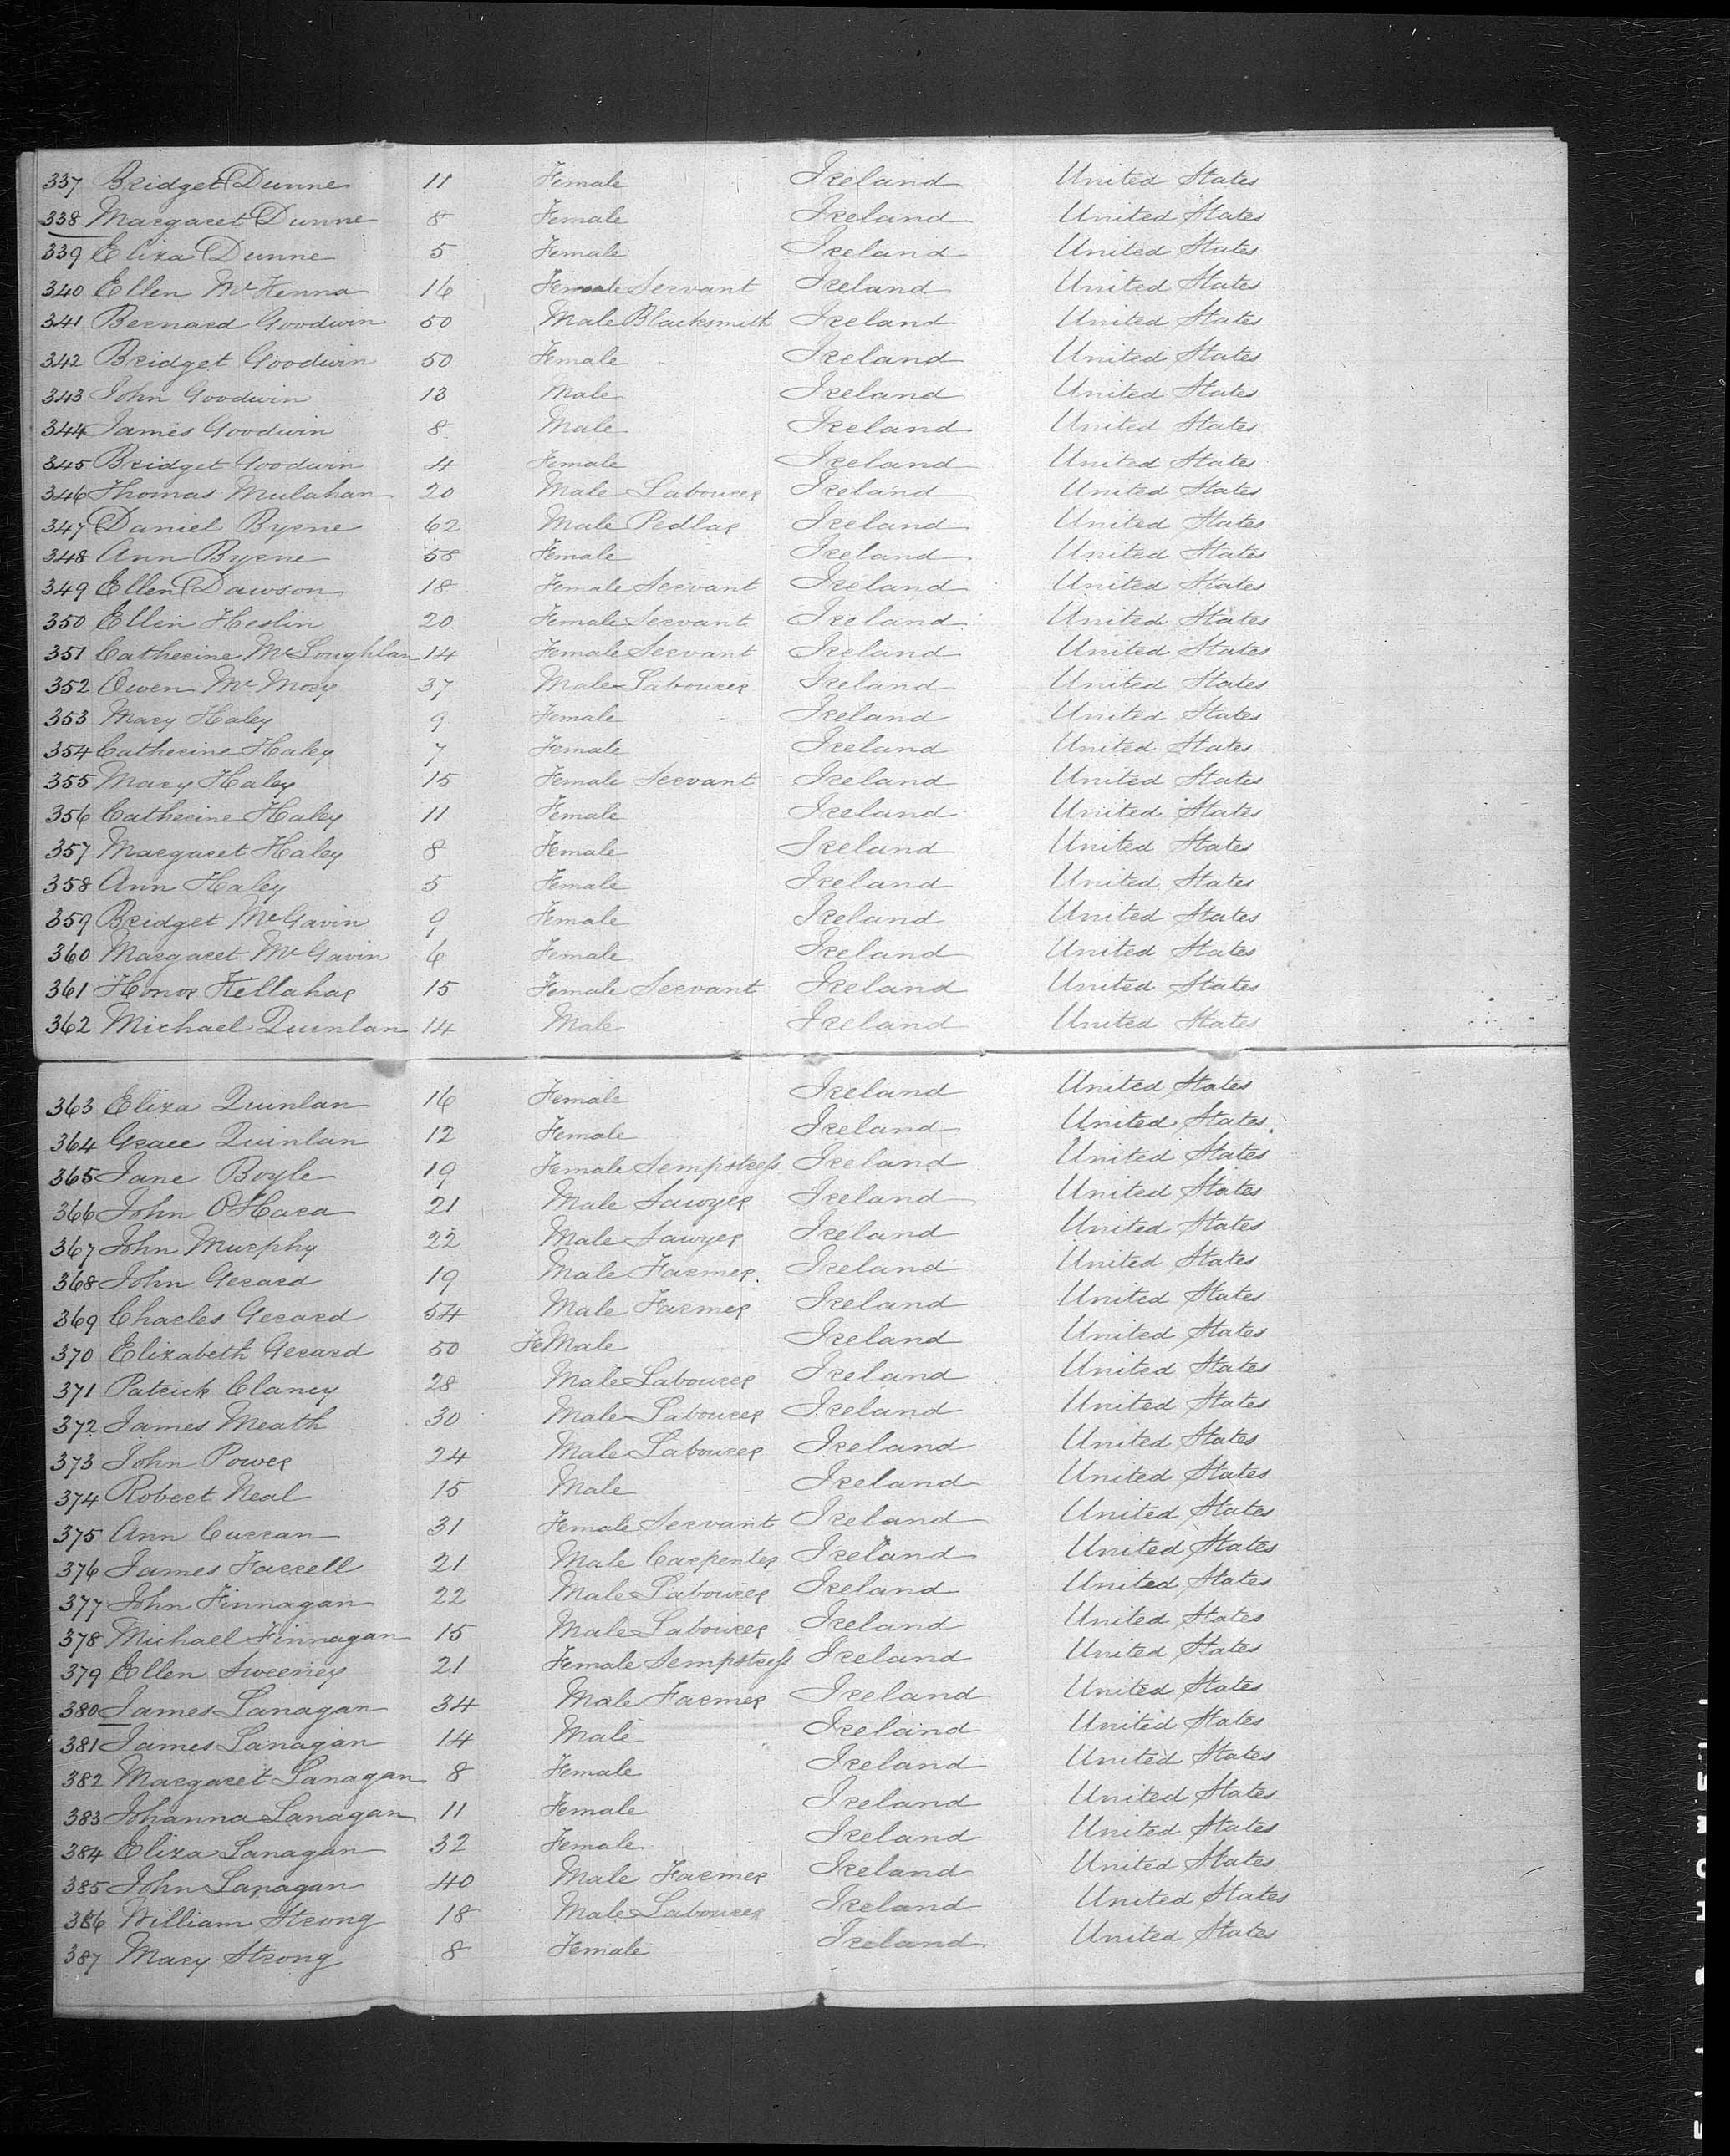 337 Bridget Dunne 11 Female Ireland United States
338 Margaret Dunne 8 Female Ireland United States
339 Eliza Dunne 5 Female Ireland United States
340 Ellen McKenna 16 Female Servant Ireland United States
341 Bernard Goodwin 50 Male Blacksmith Ireland United States
342 Bridget Goodwin 50 Female Ireland United States
343 John Goodwin 13 Male Ireland United States
344 James Goodwin 8 Male Ireland United States
345 Bridget Goodwin 4 Female Ireland United States
346 Thomas Mulahan 20 Male Labourer Ireland United States
347 Daniel Byrne 62 Male Pedlar Ireland United States
348 Ann Byrne 58 Female Ireland United States
349 Ellen Dawson 18 Female Servant Ireland United States
350 Ellen Heslin 20 Female Servant Ireland United States
351 Catherine McLoughlan 14 Female Servant Ireland United States
352 Owen McMory 37 Male Labourer Ireland United States
353 Mary Haley 9 Female Ireland United States
354 Catherine Haley 7 Female Ireland United States
355 Mary Haley 15 Female Servant Ireland United States
356 Catherine Haley 11 Female Ireland United States
357 Margaret Haley 8 Female Ireland United States
358 Ann Haley 5 Female Ireland United States
359 Bridget McGavin 9 Female Ireland United States
360 Margaret McGavin 6 Female Ireland United States
361 Honor Kellahar 15 Female Servant Ireland United States
362 Michael Quinlan 14 Male Ireland United States
363 Eliza Quinlan 16 Female Ireland United States
364 Grace Quinlan 12 Female Ireland United States
365 Jane Boyle 19 Female Sempstress Ireland United States
366 John O'Hara 21 Male Sawyer Ireland United States
367 John Murphy 22 Male Sawyer Ireland United States
368 John Gerard 19 Male Farmer Ireland United States
369 Charles Gerard 54 Male Farmer Ireland United States
370 Elizabeth Gerard 50 FeMale Ireland United States
371 Patrick Clancy 28 Male Labourer Ireland United States
372 James Meath 30 Male Labourer Ireland United States
373 John Power 24 Male Labourer Ireland United States
374 Robert Neal 15 Male Ireland United States
375 Ann Curran 31 Female Servant Ireland United States
376 James Farrell 21 Male Carpenter Ireland United States
377 John Finnagan 22 Male Labourer Ireland United States
378 Michael Finnagan 15 Male Labourer Ireland United States
379 Ellen Sweeney 21 Female Sempstress Ireland United States
380 James Lanagan 34 Male Farmer Ireland United States
381 James Lanagan 14 Male Ireland United States
382 Margaret Lanagan 8 Female Ireland United States
383 Johanna Lanagan 11 Female Ireland United States
384 Eliza Lanagan 32 Female Ireland United States
385 John Lanagan 40 Male Farmer Ireland United States
386 William Strong 18 Male Labourer Ireland United States
387 Mary Strong 8 Female Ireland United States